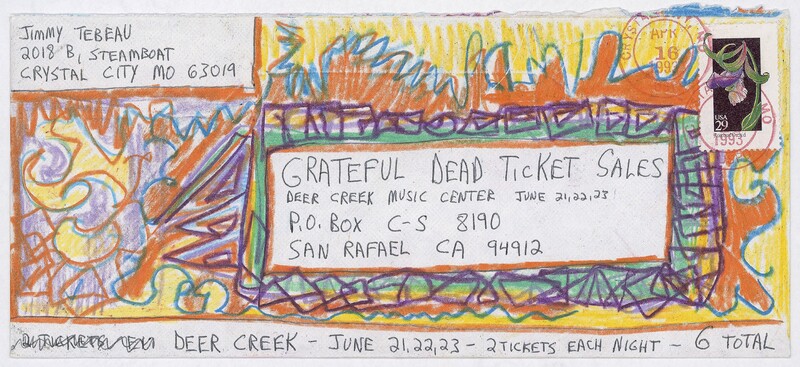 Jimmy Tebeau
2018 B, Steamboat
Crystal City MO 63019
APR
16
1993
USA
29
MO
1993
Grateful Dead Ticket Sales
Deer Creek Music Center June 21,22,23
P.O. Box C-S 8190
San Rafael CA 94912
Deer Creek - June 21,22,23 - 2 tickets each night - 6 total